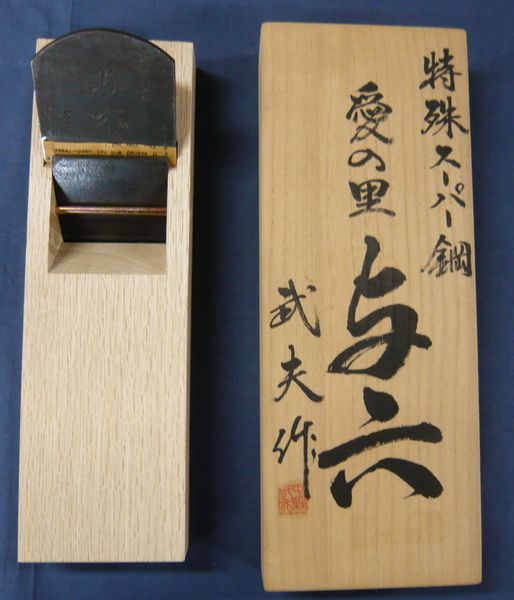 特殊スーパー鋼
愛の里
与六
武夫作
与六